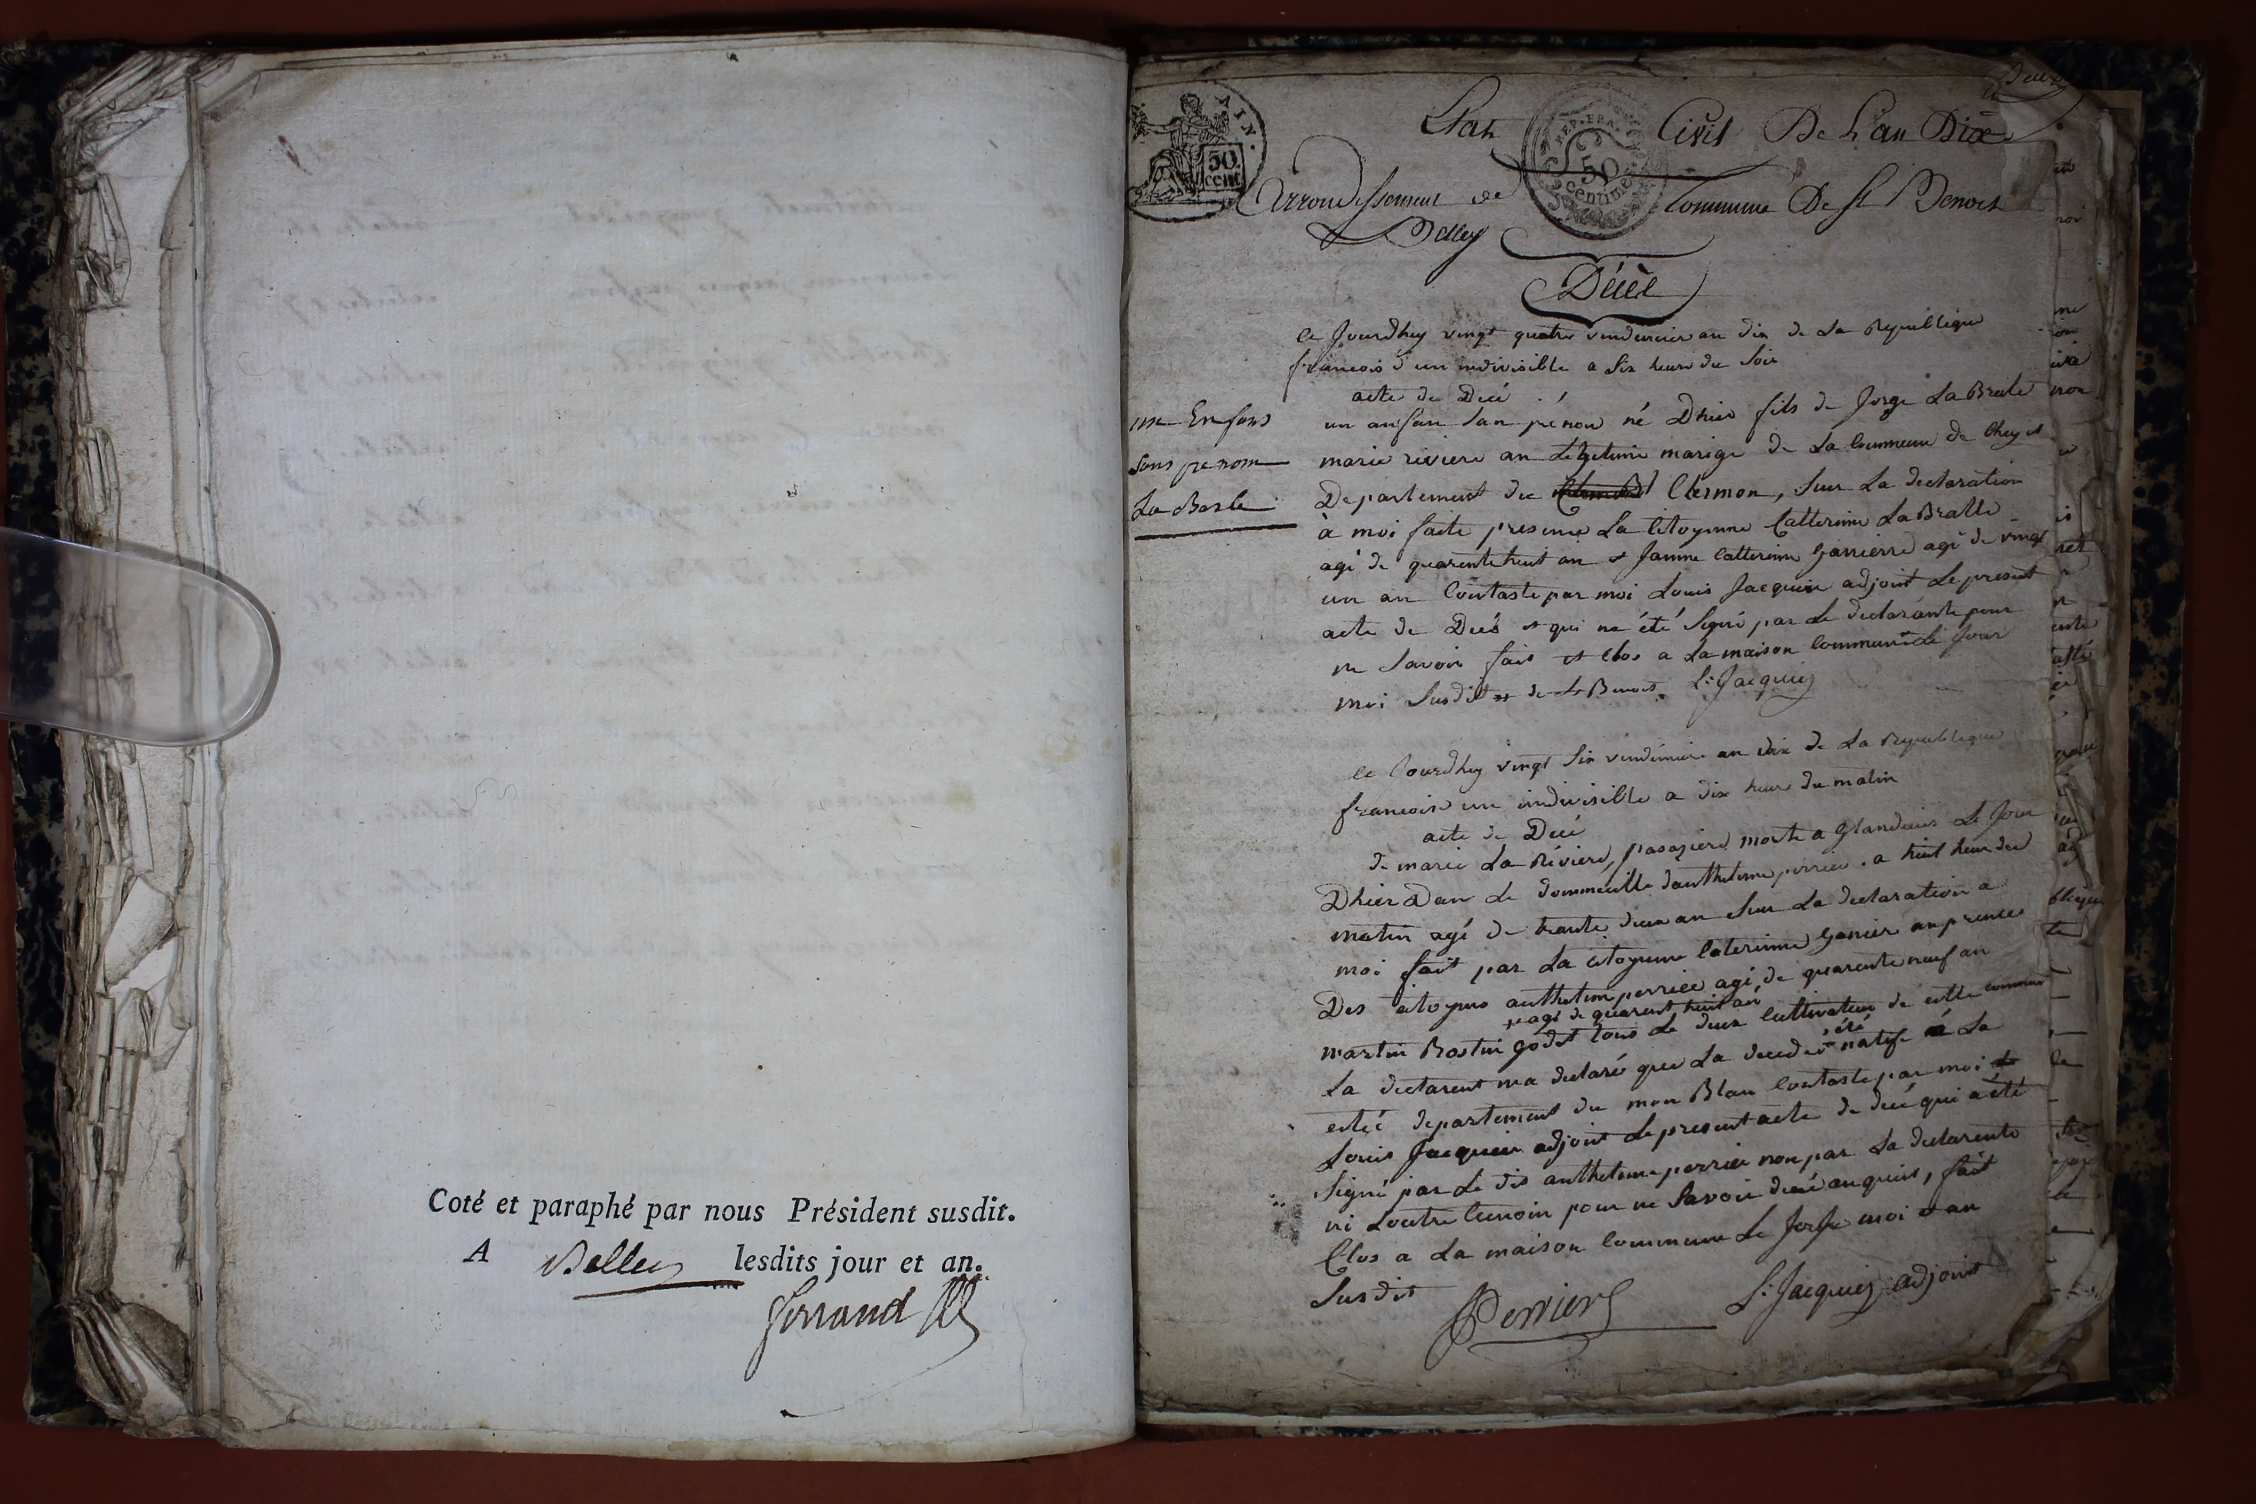 Coté et paraphé par nous Président susdit.
A Belley lesdits jour et an.
Ferrand
AIN.
50
cent
REP. FRA.
50
centimes
Etat Civil De L'an Dix
Arrondissement de Commune De St Benoit
Belley
Décès
ce Jourdhuy vingt quatre vendemier an dix de La Republique
francois d'un indivisible a Six heure du Soir
acte de Decé
une Enfans
sans prenom
La Barle
un anfan San pénon né Dhier fils de Jorge LaBrale
marie riviere an Legetime marige de La Commeune de
Departement du Clermon, Sur La declaration
à moi faite presence La Citoyenne Catterinne LaBralle
agé de quarentehuit an et Janne Catterinne Ganierre agé de vingt
un an Contaste par moi Louis Jacquier adjoint Le present
acte de Decés et qui na été Signé par Le declarante pour
ne Savoir fait et Clos a La maison Commune Le Jour
moi Susdit de St Benoit. L: Jacquier
ce Jourdhuy vingt Six vendémiere an dix de La Republique
francoise une indivisible a dix heure du matin
acte de Decé
de marie La Riviere, pasagiere morte a Glandieu Le Jour
Dhier Dan Le dommeicille danthelme perrier . a huit heur du
matin agé de trante deux an Sur La declaration a
moi fait par La citoyenne Caterinne Ganier an presence
Des citoyens anthelme perrier agé de quarente neuf an
agé de quarent huit an
martin Bostin godet tous Le deux Cultivateur de cette commune
La declarent ma declaré que La decedé été natife de La
departement du mon Blan Contaste par moi
Louis Jacquier adjoint Le present acte de decé qui a été
Signé par Le dis anthelme perrier non par La declarente
ni Loutre temoin pour ne Savoir de ce anquis, fait
Clos a La maison Commune Le Jor moi et an
Susdit
Perrier L: Jacquier adjoint